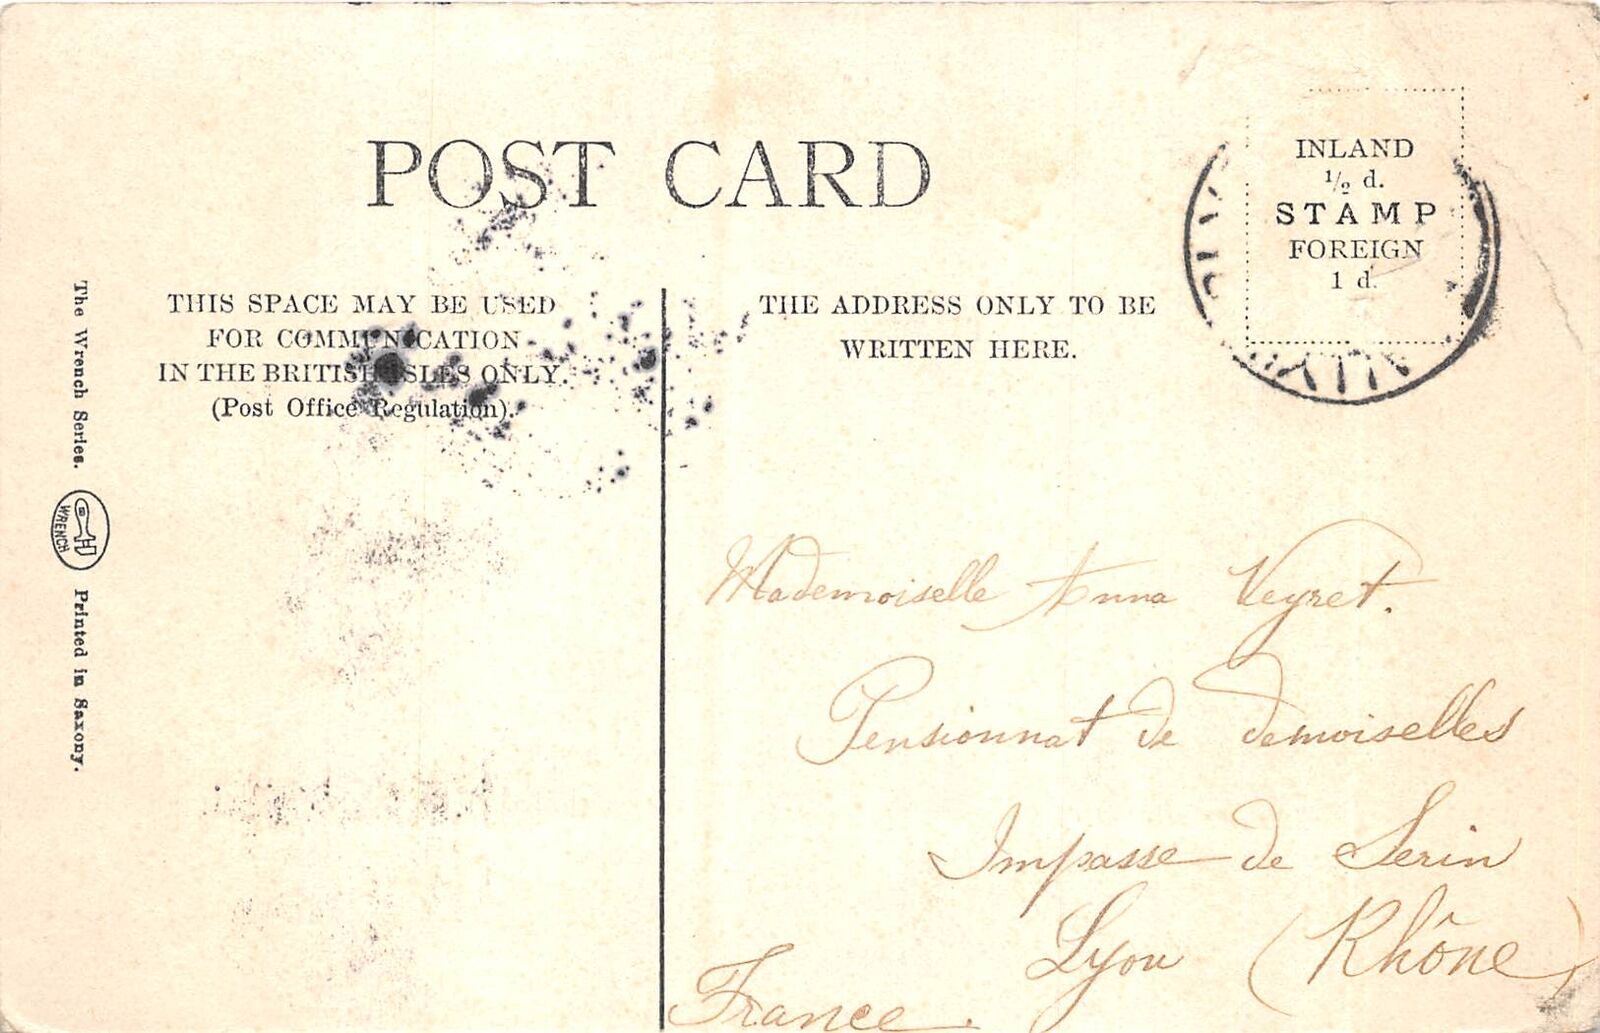 POST CARD
INLAND
½ d.
STAMP
FOREIGN
1 d.
THIS SPACE MAY BE USED
FOR COMMUNICATION
IN THE BRITISH ISLES ONLY.
(Post Office Regulation).
THE ADDRESS ONLY TO BE
WRITTEN HERE.
The Wrench Series.
WRENCH
Printed in Saxony.
Mademoiselle Anna Veyret.
Pensionnat de demoiselles
Impasse de Serin
Lyon (Rhône)
France.